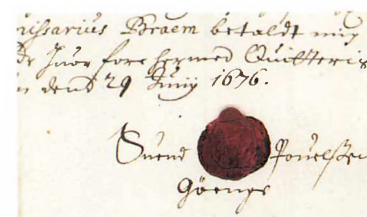 rissarius Braem betaldt mig
fore hermed Quitteris
dend 29 Junij 1676.
Suend Pouelsen
Göenge